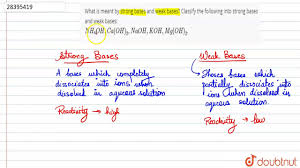 28395419
What is meant by strong bases and weak bases? Classify the following into strong bases
and weak bases:
NH₄OH, Ca(OH)₂, NaOH, KOH, Mg(OH)₂
Strong Bases
A bases which completely
dissociates into ions when
dissolved in aqueous solution
Reactivity → high
Weak Bases
→ Those bases which
partially dissociates into
ions when dissolved in
aqueous solution.
Reactivity → low
doubtnut